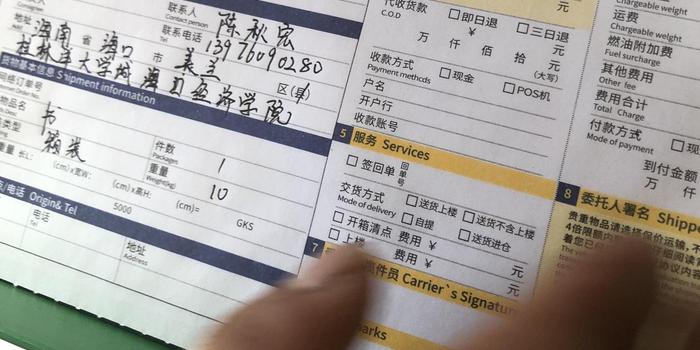 Consignee
联系人 陈秋宏
Contact person
地址 海南 省 海口 市 美兰 区(县)
Add.
联系电话 13976090280
Contact Tel
桂林洋大学城海口经济学院
货物基本信息 Shipment information
网络订单号
物品名 书
类型 箱装
件数 1
Packages
重量 10
Weight(kg)
重量 长L: (cm)x宽W: (cm)x高H: (cm)=
5000
KGS
/电话 Origin& Tel
电话
Tel
地址
Address
代收货款
C.O.D
即日退 三日退
元
万 仟 佰 拾 元
(大写)
收款方式 现金 POS机
Payment methcds
户名
开户行
收款账号
5 服务 Services
签回单 回单号
交货方式 送货上楼 送货不含上楼
Mode of delivery 自提 送货进仓
开箱清点 费用 ¥ 元
上楼 费用 ¥ 元
7
员 Carrier`s Signatur
Chargeable weight
运费
Chargeable weight
燃油附加费
Fuel surcharge
其他费用
Other fee
费用合计
Total Charge
付款方式
Mode of payment
到付金额
万 仟
8 委托人署名 Shippe
贵重物品请选择保价运输
4倍限额内